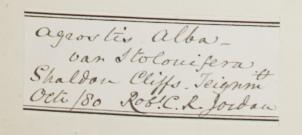 Agrostis Alba -
var Stolonifera
Shaldon Cliffs. Teignmth
Oct/80 Robt. C. R. Jordan